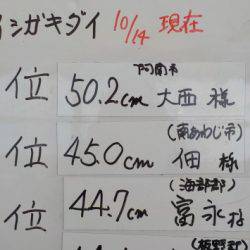 イシガキダイ 10/14 現在
阿南市
位 50.2cm 大西 様
(南あわじ市)
位 45.0cm 佃 様
(海部郡)
位 44.7cm 富永 様
(板野郡)